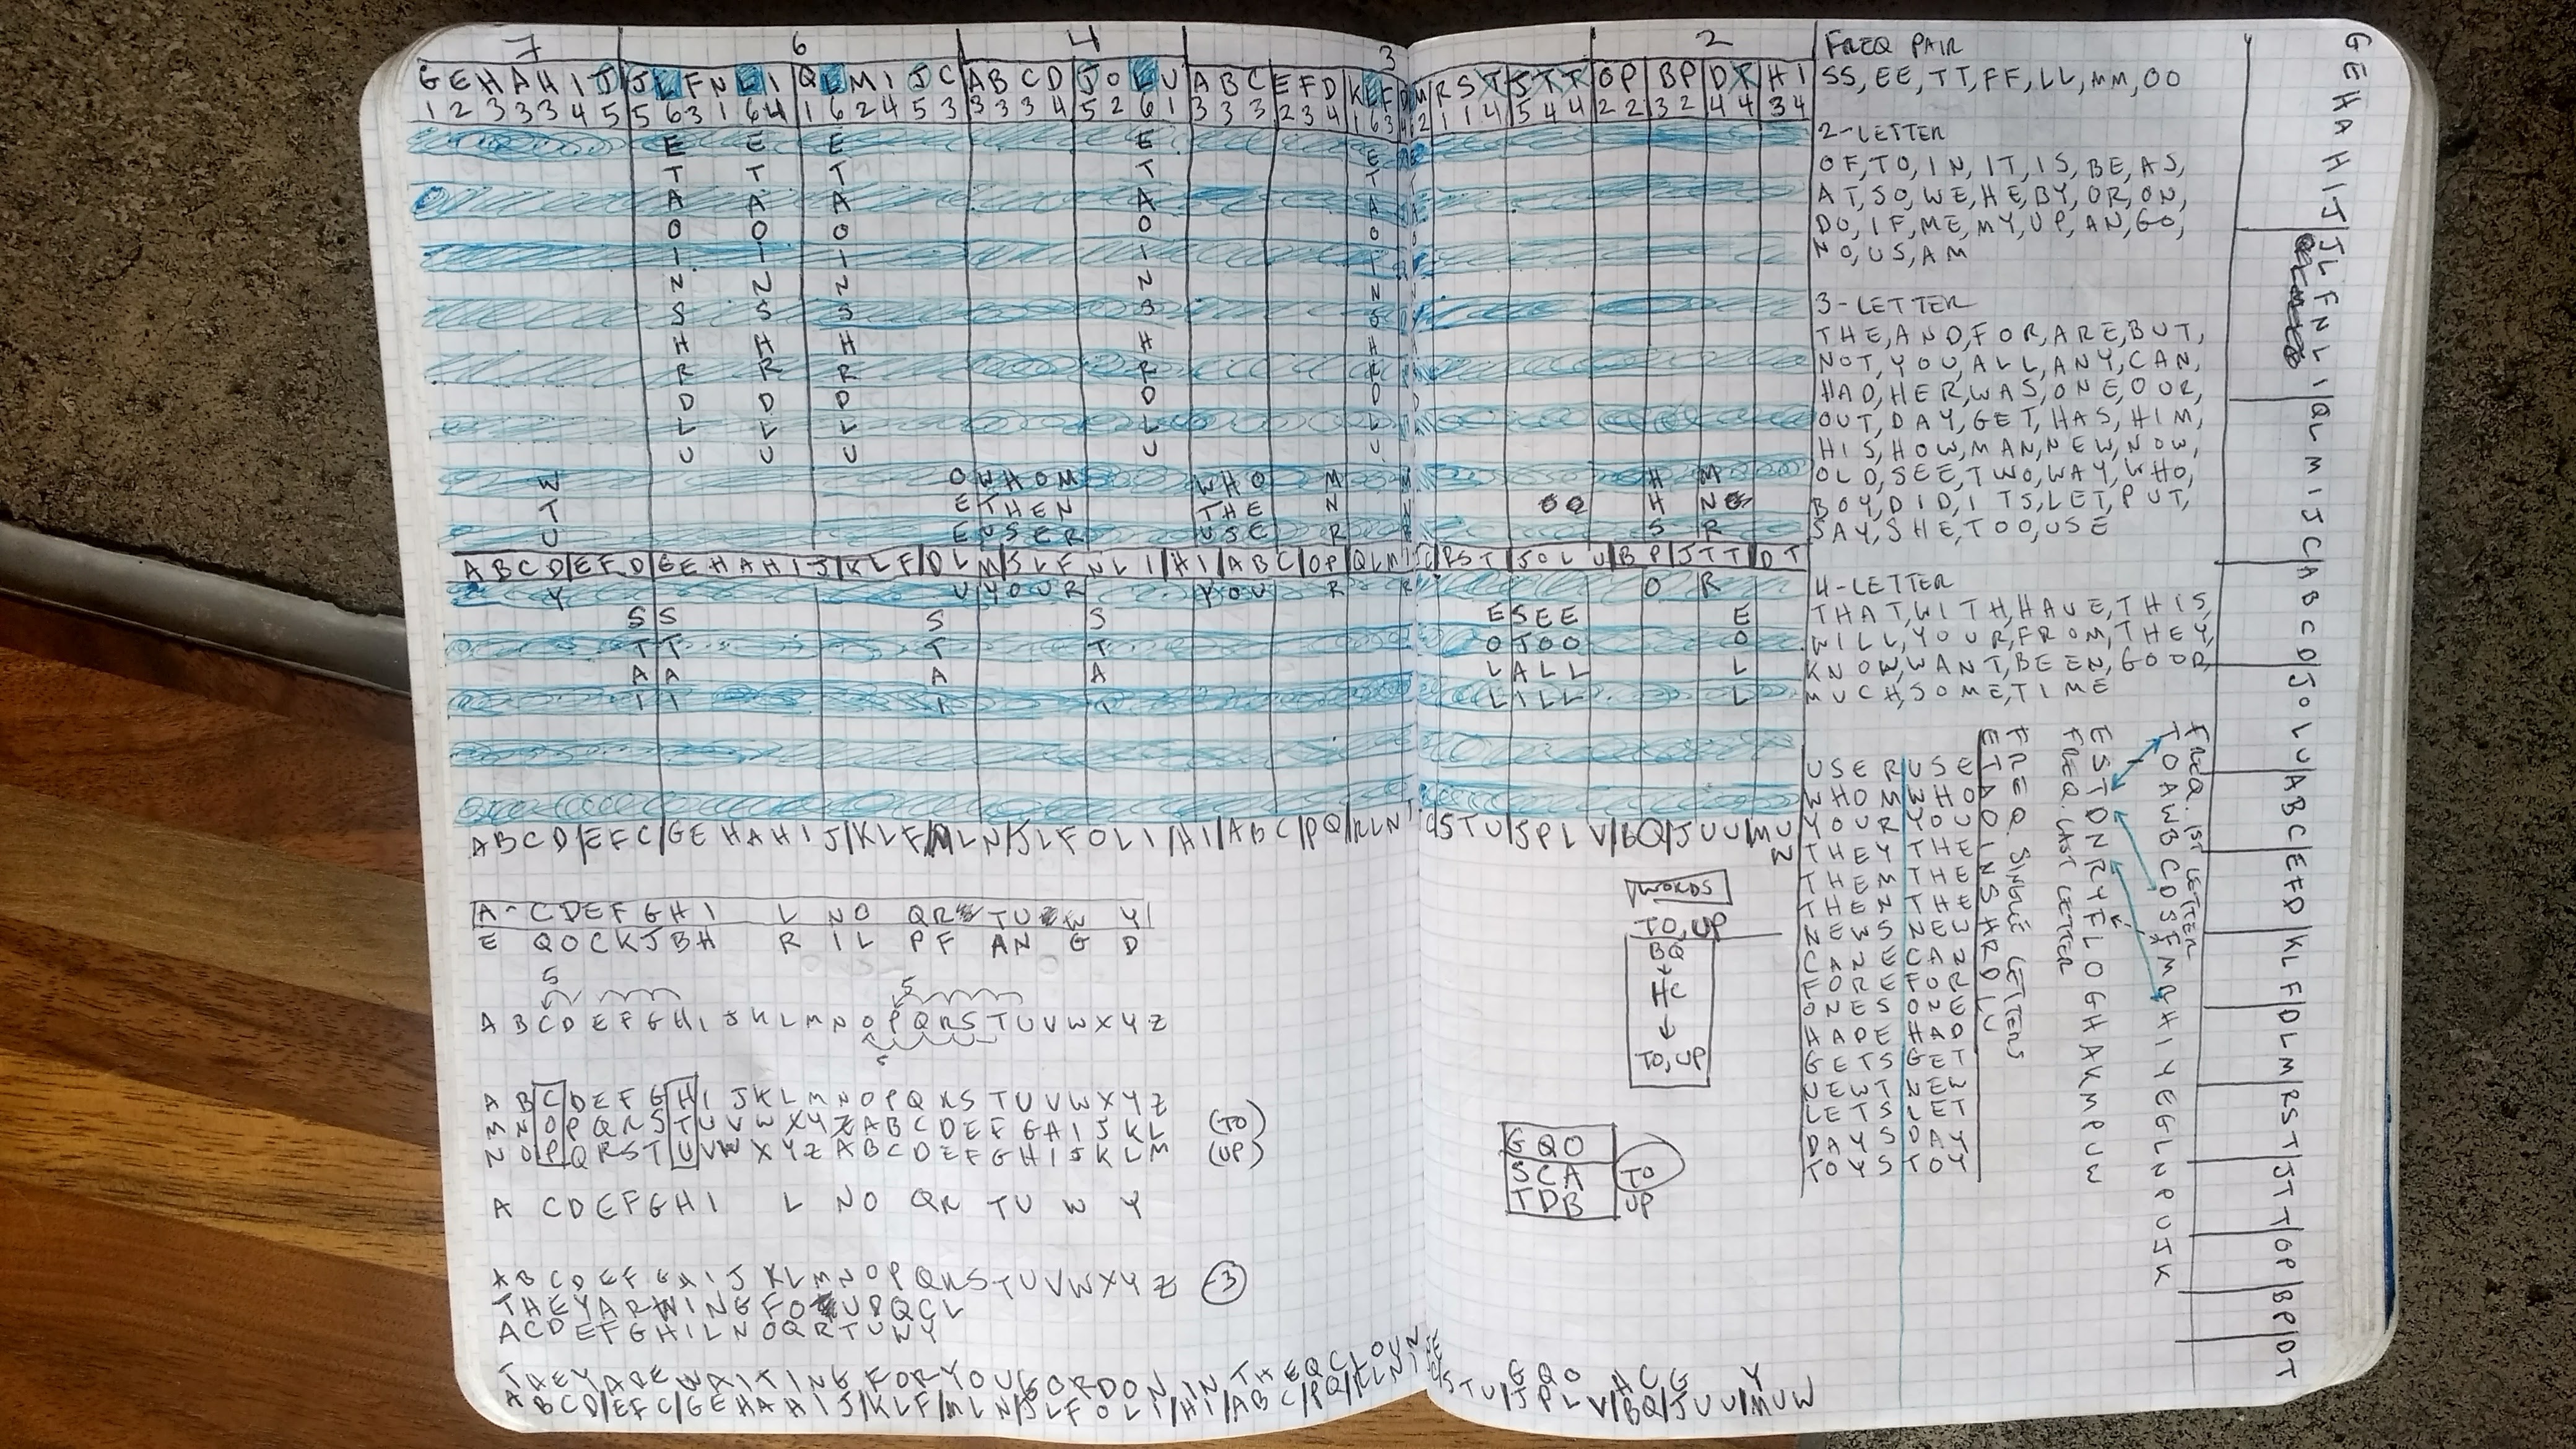 7 6 4 3 2
G E H A H I J J L F N L I Q L M I J C A B C D J O L U A B C E F D K L F D L M R S T J T T O P B P D T H I
1 2 3 3 3 4 5 5 6 3 1 6 4 1 6 2 4 5 3 3 3 3 4 5 2 6 1 3 3 3 2 3 4 1 6 3
E E E E E
T T T T T
A A A A A
O O O O O
I I I I I
N N N N N
S S S S S
H H H H H
R R R R R
D D D D D
L L L L L
U U U U U
W O W H O M W H O M H M
T E T H E N T H E N H N
U E U S E R U S E R S R
A B C D|E F D|G E H A H I J|K L F|D L M|J L F N L I|H I|A B C|O P|Q L M I C|R S T|J O L U|B P|J T T|D T
Y U Y O U R Y O U R O R
S S S S E S E E E
T T T T O T O O O
A A A A L A L L L
I I I I L I L L L
A B C D|E F C|G E H A H I J|K L F|M L N|J L F O L I|H I|A B C|P Q|R L N I C|S T U|J P L V|B Q|J U U|M U W
A C D E F G H I L N O Q R T U W Y
E Q O C K J B H R I L P F A N G D
5 5
A B C D E F G H I J K L M N O P Q R S T U V W X Y Z
5
A B C D E F G H I J K L M N O P Q R S T U V W X Y Z
M N O P Q R S T U V W X Y Z A B C D E F G H I J K L (TO)
N O P Q R S T U V W X Y Z A B C D E F G H I J K L M (UP)
A C D E F G H I L N O Q R T U W Y
A B C D E F G H I J K L M N O P Q R S T U V W X Y Z -3
T H E Y A R W I N G F O U P Q C L
A C D E F G H I L N O Q R T U W Y
T H E Y A R E W A I T I N G F O R Y O U G O R D O N I N T H E Q C L O U N E G Q O A C G Y
A B C D|E F C|G E H A H I J|K L F|M L N|J L F O L I|H I|A B C|P Q|R L N I C|S T U|J P L V|B Q|J U U|M U W
WORDS
TO, UP
BQ
HC
TO, UP
G Q O
S C A TO
T D B UP
FREQ PAIR
SS, EE, TT, FF, LL, MM, OO
2-LETTER
OF, TO, IN, IT, IS, BE, AS,
AT, SO, WE, HE, BY, OR, ON,
DO, IF, ME, MY, UP, AN, GO,
NO, US, AM
3-LETTER
THE, AND, FOR, ARE, BUT,
NOT, YOU, ALL, ANY, CAN,
HAD, HER, WAS, ONE, OUR,
OUT, DAY, GET, HAS, HIM,
HIS, HOW, MAN, NEW, NOW,
OLD, SEE, TWO, WAY, WHO,
BOY, DID, ITS, LET, PUT,
SAY, SHE, TOO, USE
4-LETTER
THAT, WITH, HAVE, THIS,
WILL, YOUR, FROM, THEY,
KNOW, WANT, BEEN, GOOD,
MUCH, SOME, TIME
USER USE
WHOM WHO
YOUR YOU
THEY THE
THEM THE
THEN THE
NEWS NEW
CANE CAN
FORE FOR
ONES ONE
HADE HAD
GETS GET
NEWT NEW
LETS LET
DAYS DAY
TOYS TOY
FREQ SINGLE LETTERS
E T A O I N S H R D L U
FREQ. LAST LETTER
E S T D N R Y F L O G H A K M P U W
FREQ. 1ST LETTER
T O A W B C D S F M R H I Y E G L N P U J K
G E H A H I J|J L F N L I|Q L M I J C|A B C D|J O L U|A B C|E F D|K L F|D L M|R S T|J T T|O P|B P|D T